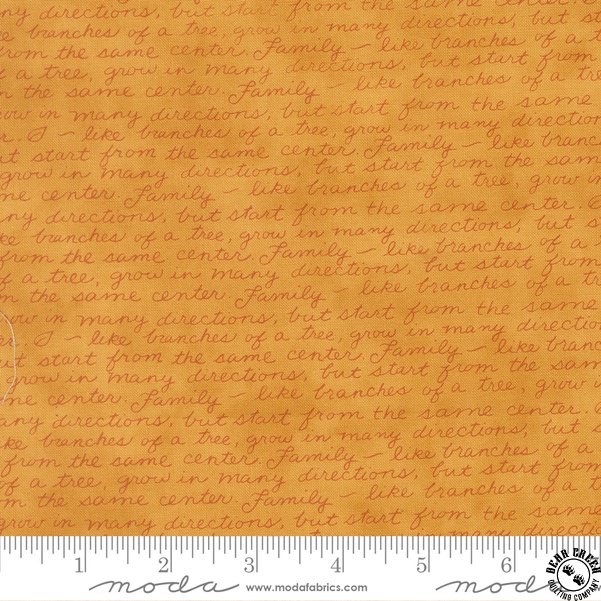 ny directions, but start from the same center.
e branches of a tree, grow in many directions, but st
from the same center. Family – like branches of a t
f a tree, grow in many directions, but start from
n the same center. Family – like branches of a tre
row in many directions, but start from the same
r. – like branches of a tree, grow in many direction
ut start from the same center. Family – like branch
grow in many directions, but start from the sam
me center. Family – like branches of a tree, grow in
ny directions, but start from the same center.
ke branches of a tree, grow in many directions, but s
from the same center. Family – like branches of a
f a tree, grow in many directions, but start from
m the same center. Family – like branches of a tr
ow in many directions, but start from the same
er. – like branches of a tree, grow in many directio
ut start from the same center. Family – like branc
grow in many directions, but start from the sam
me center. Family – like branches of a tree, grow i
any directions, but start from the same center.
ke branches of a tree, grow in many directions, but s
from the same center. Family – like branches of a
of a tree, grow in many directions, but start from
m the same center. Family – like branches of a tr
grow in many directions, but start from the same
directi
1 2 3 4 5 6
moda www.modafabrics.com mod
BEAR CREEK
QUILTING COMPANY